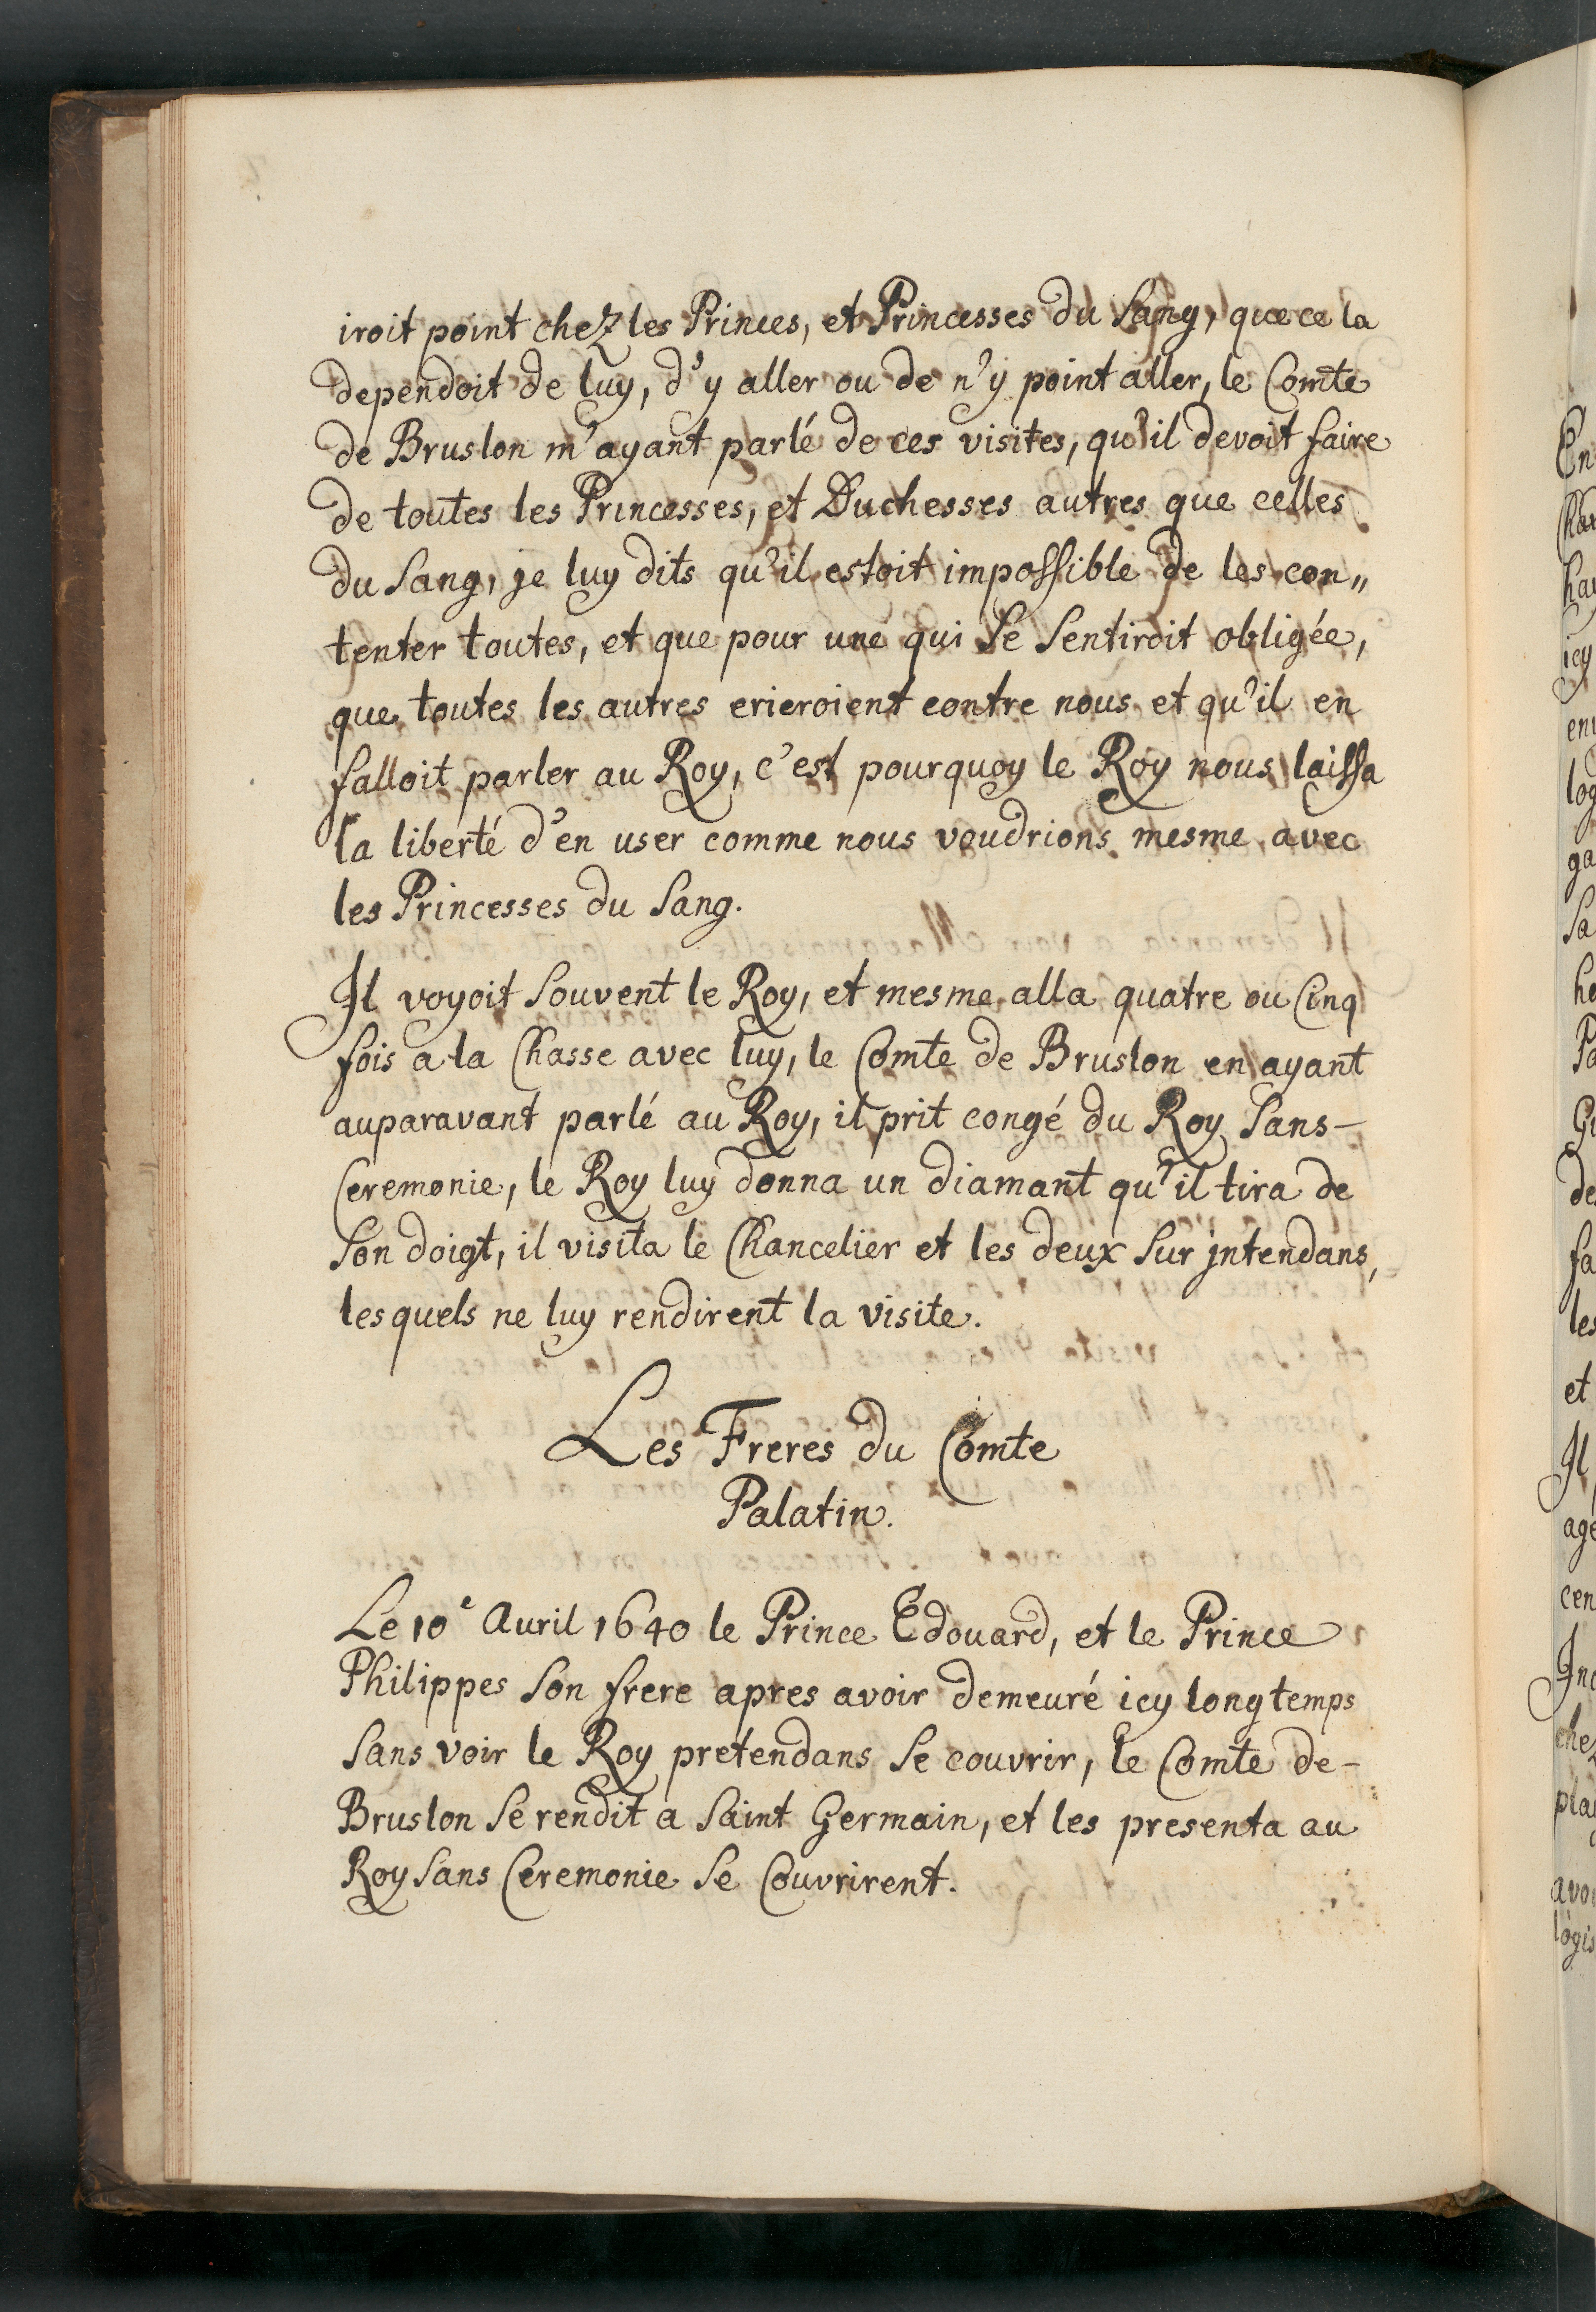 iroit point chez les Princes, et Princesses du Sang, que ce la
dependoit de luy, d'y aller ou de n'y point aller, le Comte
de Bruslon m'ayant parlé de ces visites, qu'il devoit faire
de toutes les Princesses, et Duchesses autres que celles
du Sang, je luy dits qu'il estoit impossible de les con„
tenter toutes, et que pour une qui Se Sentiroit obligée,
que toutes les autres crieroient contre nous et qu'il en
falloit parler au Roy, c'est pourquoy le Roy nous laissa
la liberté d'en user comme nous voudrions mesme avec
les Princesses du Sang.
Il voyoit Souvent le Roy, et mesme alla quatre ou Cinq
fois a la Chasse avec luy, le Comte de Bruslon en ayant
auparavant parlé au Roy, il prit congé du Roy Sans-
Ceremonie, le Roy luy donna un diamant qu'il tira de
Son doigt, il visita le Chancelier et les deux Sur jntendans,
les quels ne luy rendirent la visite.
Les Freres du Comte
Palatin.
Le 10e Auril 1640 le Prince Edouard, et le Prince
Philippes Son frere apres avoir demeuré icy longtemps
Sans voir le Roy pretendans Se couvrir, le Comte de-
Bruslon Se rendit a Saint Germain, et les presenta au
Roy Sans Ceremonie Se Couvrirent.